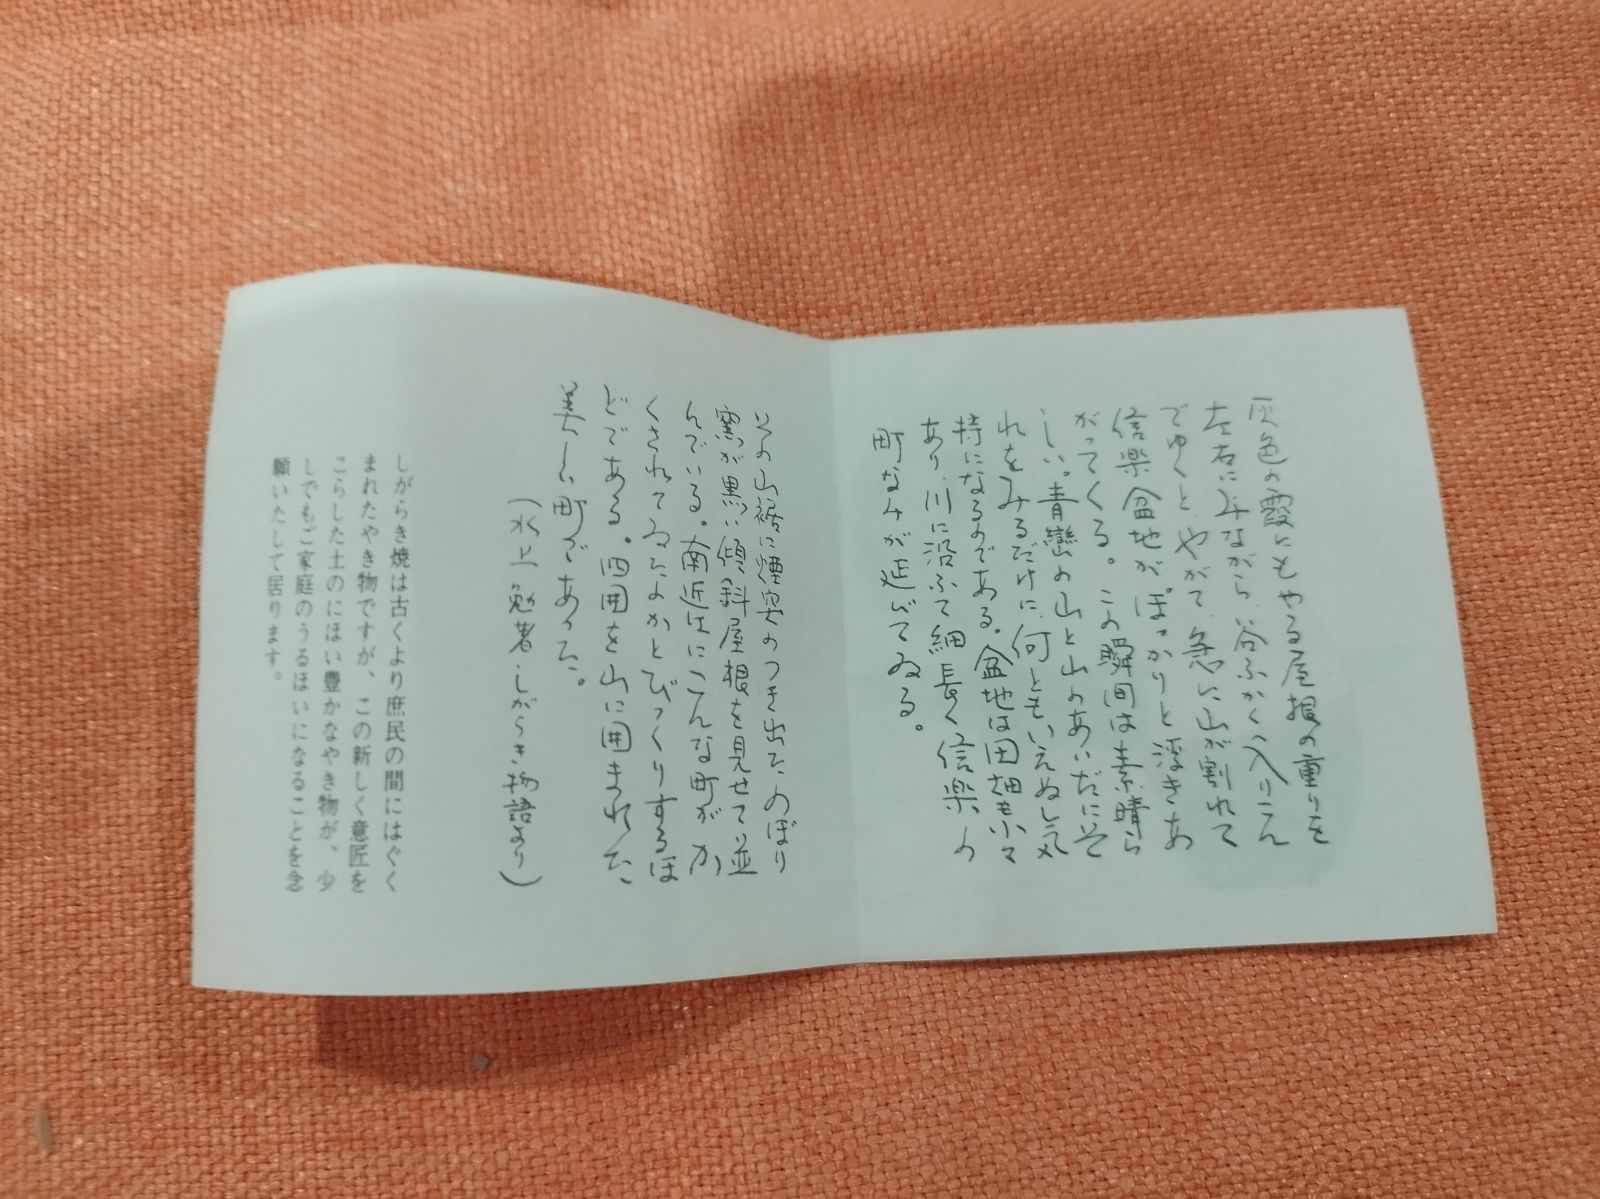 灰色の霞にもやる屋根の重りを
左右にみながら、谷ふかく入りこん
でゆくと、やがて、急に山が割れて
信楽盆地が、ぽっかりと浮きあ
がってくる。この瞬間は素晴ら
しい。青巒の山と山のあいだにそ
れをみるだけに、何ともいえぬ気
持になるのである。盆地は田畑も少々
あり、川に沿ふて細長く信楽の
町なみが延びてゐる。
その山裾に煙突のつき出たのぼり
窯が黒い傾斜屋根を見せて並
んでいる。南近江にこんな町がか
くされてゐたよかとびっくりするほ
どである。四囲を山に囲まれた
美しい町であった。
(水上勉著・しがらき物語より)
しがらき焼は古くより庶民の間にはぐく
まれたやき物ですが、この新しく意匠を
こらした土のにほい豊かなやき物が、少
しでもご家庭のうるほいになることを念
願いたして居ります。